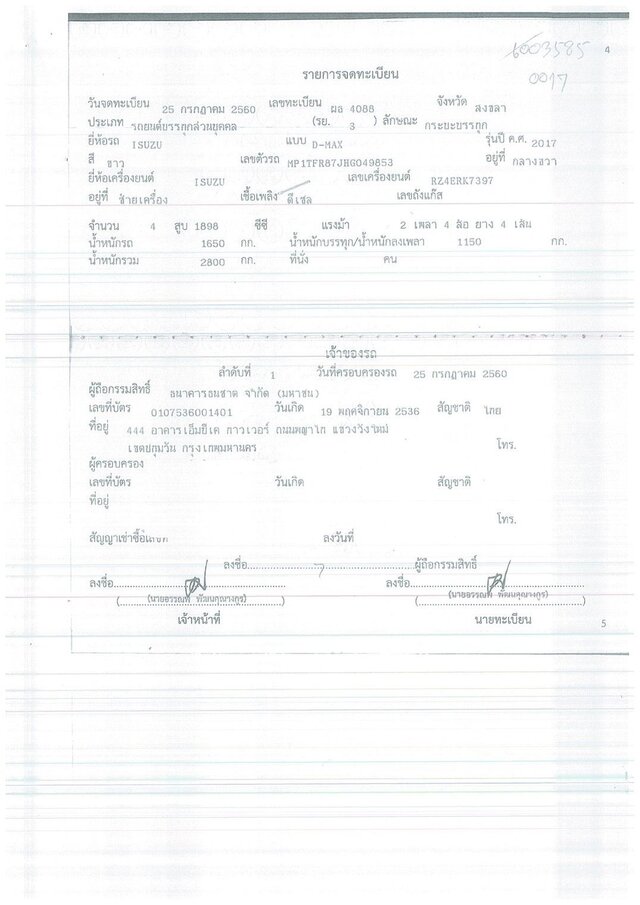 6003585
4
0017
รายการจดทะเบียน
วันจดทะเบียน 25 กรกฎาคม 2560 เลขทะเบียน ผล 4088 จังหวัด สงขลา
ประเภท รถยนต์บรรทุกส่วนบุคคล (รย. 3 ) ลักษณะ กระบะบรรทุก
ยี่ห้อรถ ISUZU แบบ D-MAX รุ่นปี ค.ศ. 2017
สี ขาว เลขตัวรถ MP1TFR87JHG049853 อยู่ที่ กลางขวา
ยี่ห้อเครื่องยนต์ ISUZU เลขเครื่องยนต์ RZ4ERK7397
อยู่ที่ ซ้ายเครื่อง เชื้อเพลิง ดีเซล เลขถังแก๊ส
จำนวน 4 สูบ 1898 ซีซี แรงม้า 2 เพลา 4 ล้อ ยาง 4 เส้น
น้ำหนักรถ 1650 กก. น้ำหนักบรรทุก/น้ำหนักลงเพลา 1150 กก.
น้ำหนักรวม 2800 กก. ที่นั่ง คน
เจ้าของรถ
ลำดับที่ 1 วันที่ครอบครองรถ 25 กรกฎาคม 2560
ผู้ถือกรรมสิทธิ์ ธนาคารธนชาต จำกัด (มหาชน)
เลขที่บัตร 0107536001401 วันเกิด 19 พฤศจิกายน 2536 สัญชาติ ไทย
ที่อยู่ 444 อาคารเอ็มบีเค ทาวเวอร์ ถนนพญาไท แขวงวังใหม่
เขตปทุมวัน กรุงเทพมหานคร โทร.
ผู้ครอบครอง
เลขที่บัตร วันเกิด สัญชาติ
ที่อยู่
โทร.
สัญญาเช่าซื้อเลขที่ ลงวันที่
ลงชื่อ........................................ผู้ถือกรรมสิทธิ์
ลงชื่อ........................................ ลงชื่อ........................................
เจ้าหน้าที่ นายทะเบียน
5